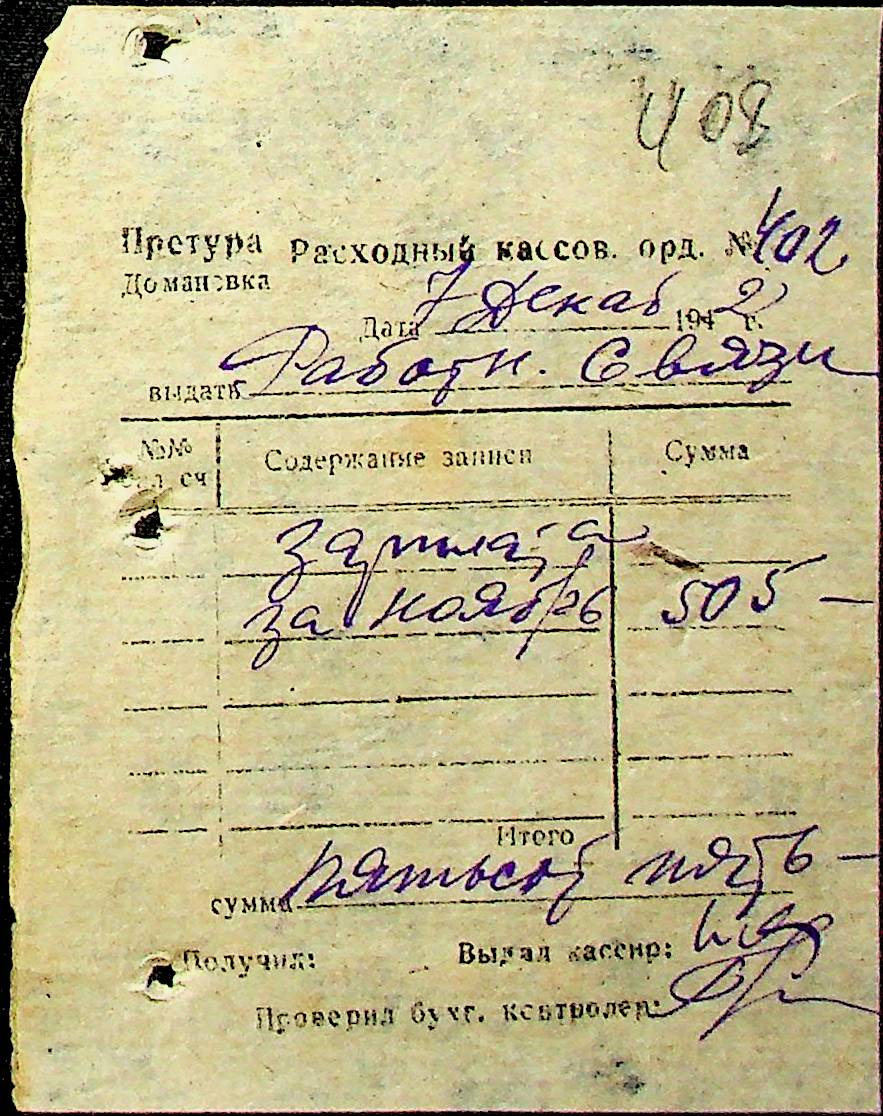 408
Претура Расходный кассов. орд. № 402
Домановка
Дата 7 Декаб 1942 г.
выдать Работн. Связи
№№ бал сч Содержание записи Сумма
зарплата
за ноябрь 505 —
Итого
сумма пятьсот пять —
Получил: Выдал кассир:
Проверил бухг. контролер: